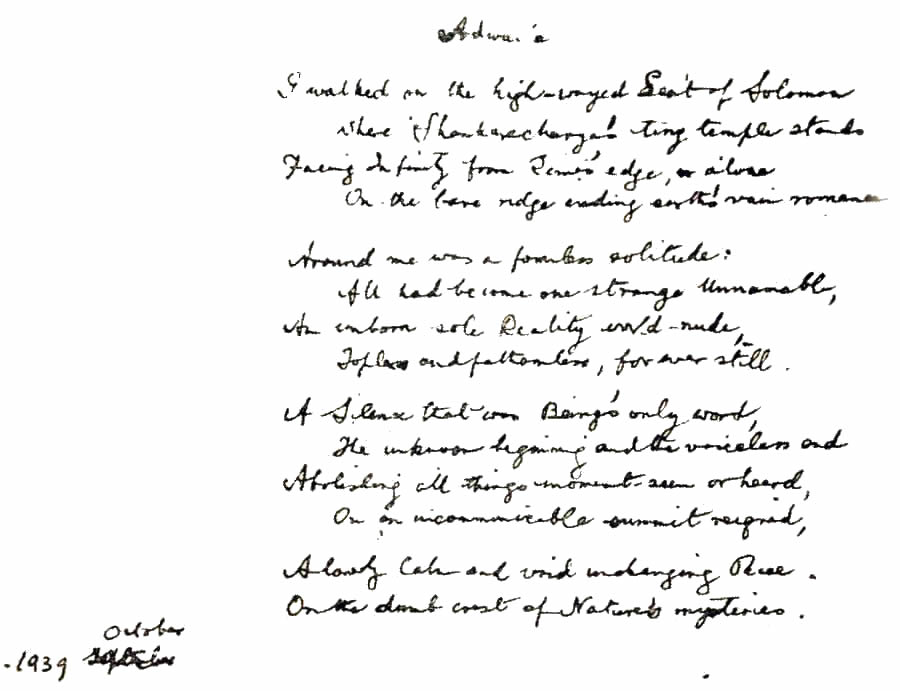 Adwaita
I walked on the high-wayed Seat of Solomon
Where Shankaracharya's tiny temple stands
Facing Infinity from Time's edge, alone
On the bare ridge ending earth's vain romance
Around me was a formless solitude:
All had become one strange Unnamable,
An unborn sole Reality world-nude,
Topless and fathomless, for ever still.
A Silence that was Being's only word,
The unknown beginning and the voiceless end
Abolishing all things moment-seen or heard,
On an incommunicable summit reigned,
A lonely Calm and void unchanging Peace.
On the dumb crest of Nature's mysteries.
October
-1939